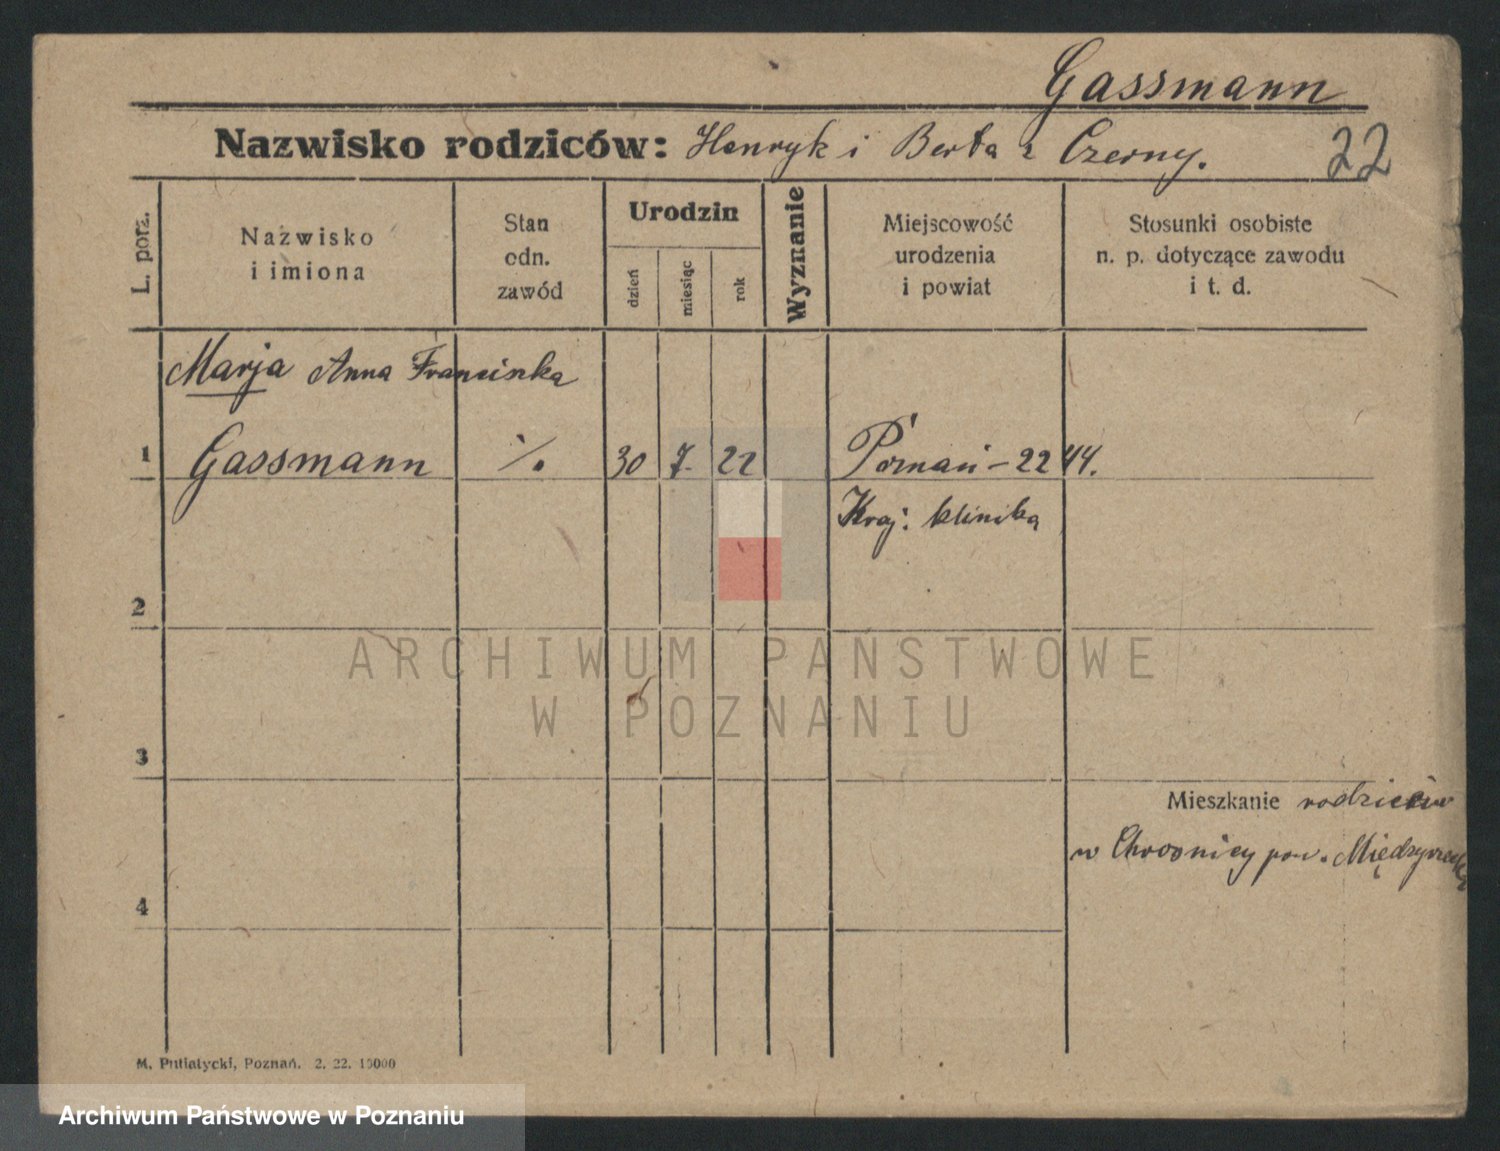 Gassmann
Nazwisko rodziców: Henryk i Berta z Czerny.
22
L. porz.
Nazwisko i imiona
Stan odn. zawód
Urodzin
dzień
miesiąc
rok
Wyznanie
Miejscowość urodzenia i powiat
Stosunki osobiste n. p. dotyczące zawodu i t. d.
Marja Anna Franciszka
1 Gassmann ·/. 30 7. 22 Poznań - 2244.
Kraj. klinika
2
ARCHIWUM PAŃSTWOWE
W POZNANIU
3
Mieszkanie rodziców
w Chrośnicy pow. Międzyrzecki
4
M. Putiatycki, Poznań. 2. 22. 15000
Archiwum Państwowe w Poznaniu